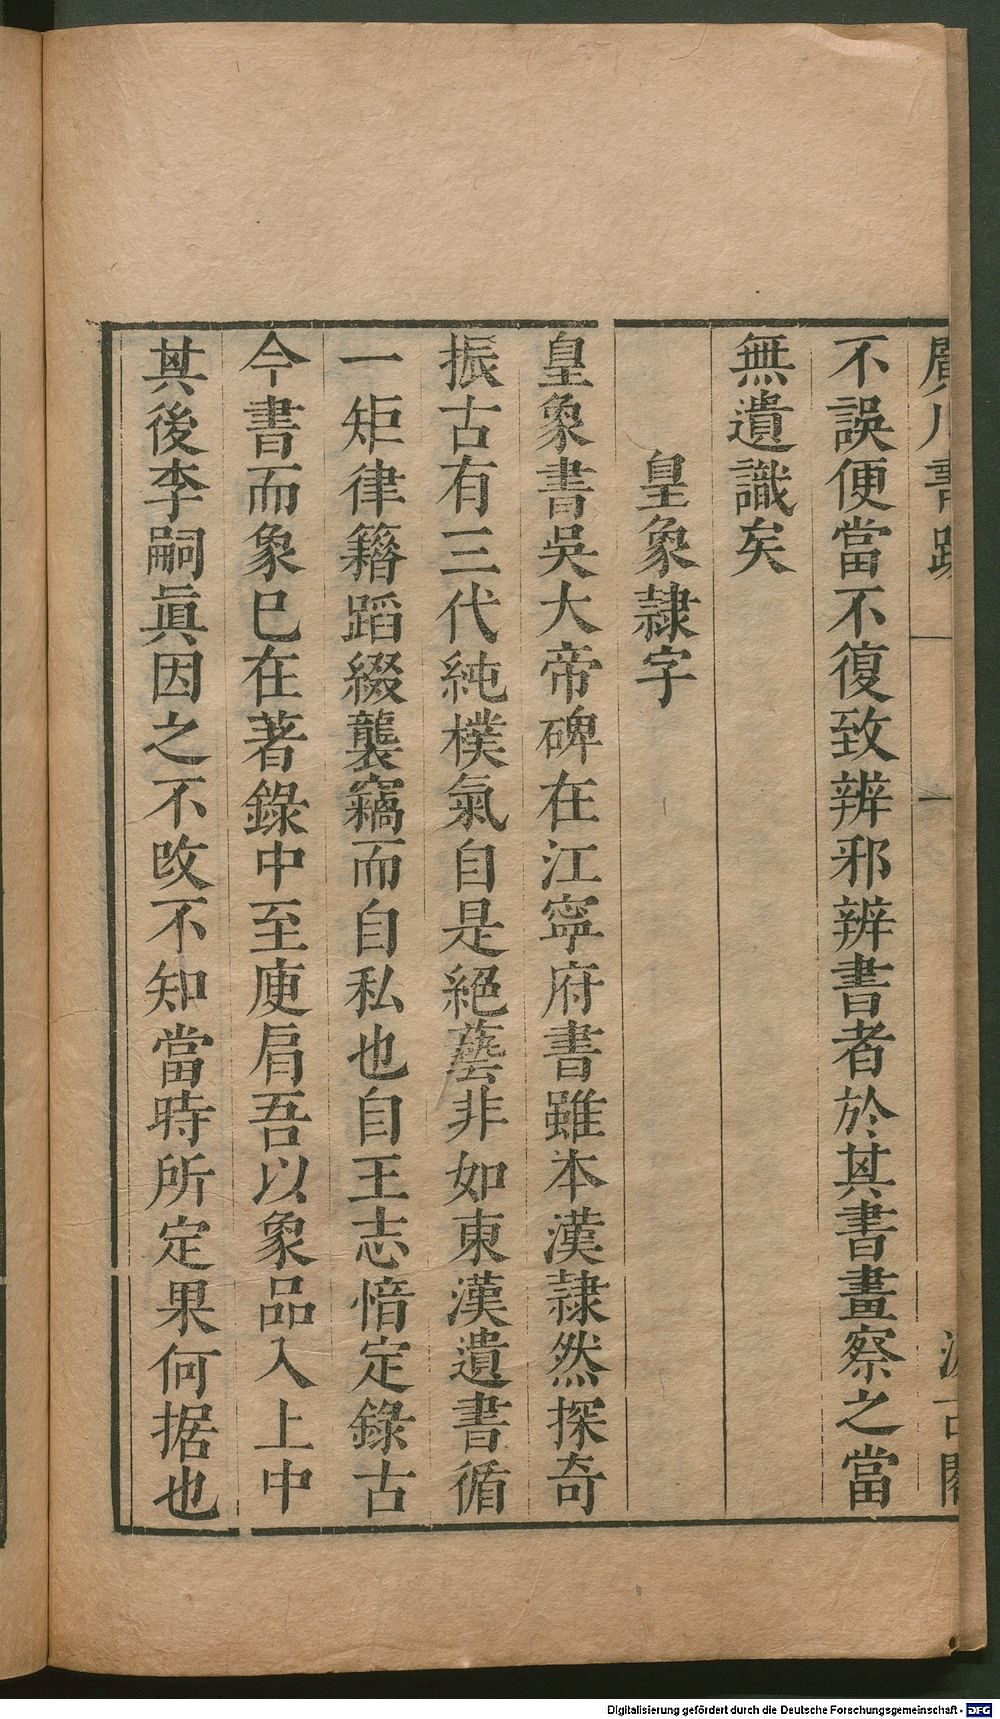 廣川書跋 一 汲古閣
不誤便當不復致辨邪辨書者於其書畫察之當
無遺識矣
皇象隸字
皇象書吳大帝碑在江寧府書雖本漢隸然探奇
振古有三代純樸氣自是絕藝非如東漢遺書循
一矩律籍蹈綴襲竊而自私也自王志愔定錄古
今書而象巳在著錄中至庾肩吾以象品入上中
其後李嗣眞因之不改不知當時所定果何据也
Digitalisierung gefördert durch die Deutsche Forschungsgemeinschaft - DFG